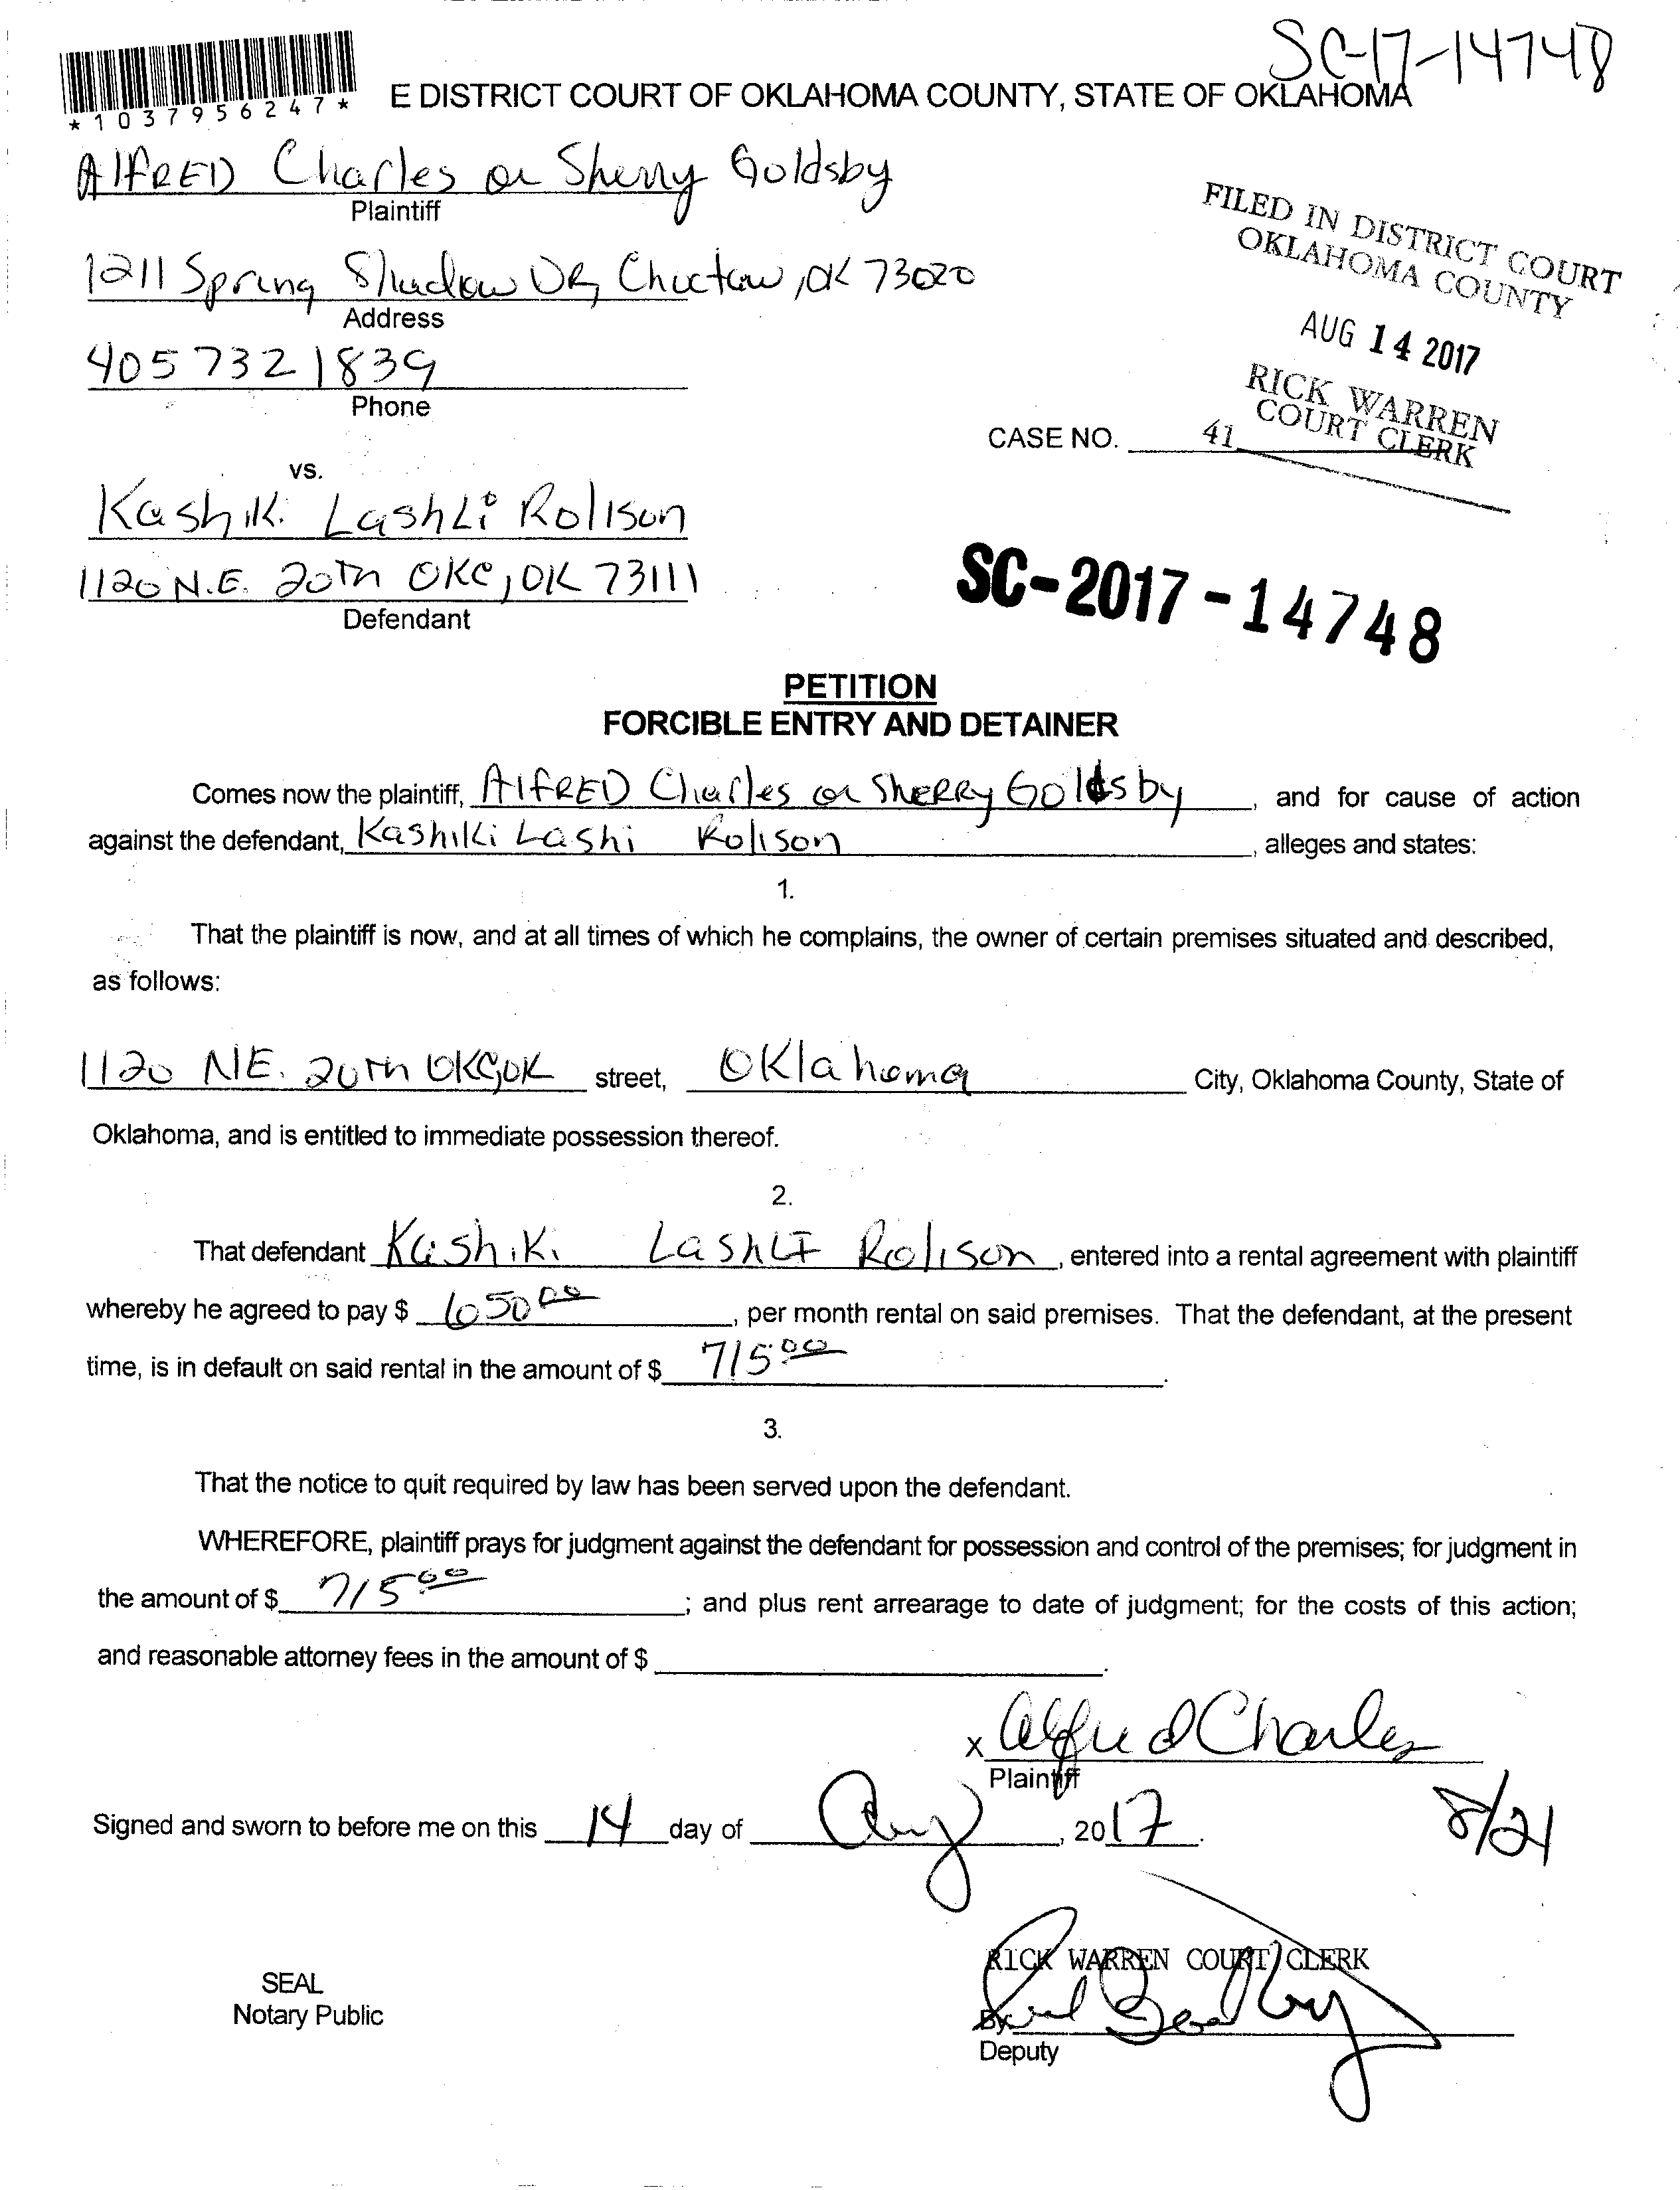 SC-17-14748
*1037956247*
E DISTRICT COURT OF OKLAHOMA COUNTY, STATE OF OKLAHOMA
AlfRED Charles or Sherry Goldsby
Plaintiff
1211 Spring Shadow DR, Choctaw, OK 73020
Address
405 732 1839
Phone
FILED IN DISTRICT COURT
OKLAHOMA COUNTY
AUG 14 2017
RICK WARREN
COURT CLERK
CASE NO. 41
vs.
Kashiki LashLi Rolison
1120 N.E. 20TH OKC, OK 73111
Defendant
SC-2017-14748
PETITION
FORCIBLE ENTRY AND DETAINER
Comes now the plaintiff, AlfRED Charles or SheRRy Goldsby, and for cause of action
against the defendant, Kashiki Lashi Rolison, alleges and states:
1.
That the plaintiff is now, and at all times of which he complains, the owner of certain premises situated and described,
as follows:
1120 NE. 20TH OKC, OK street, Oklahoma City, Oklahoma County, State of
Oklahoma, and is entitled to immediate possession thereof.
2.
That defendant Kashiki LashLI Rolison, entered into a rental agreement with plaintiff
whereby he agreed to pay $ 650 00, per month rental on said premises. That the defendant, at the present
time, is in default on said rental in the amount of $ 715 00.
3.
That the notice to quit required by law has been served upon the defendant.
WHEREFORE, plaintiff prays for judgment against the defendant for possession and control of the premises; for judgment in
the amount of $ 715 00; and plus rent arrearage to date of judgment; for the costs of this action;
and reasonable attorney fees in the amount of $ .
x Alfred Charles
Plaintiff
Signed and sworn to before me on this 14 day of Aug, 2017.
8/21
RICK WARREN COURT CLERK
SEAL
Notary Public
By
Deputy